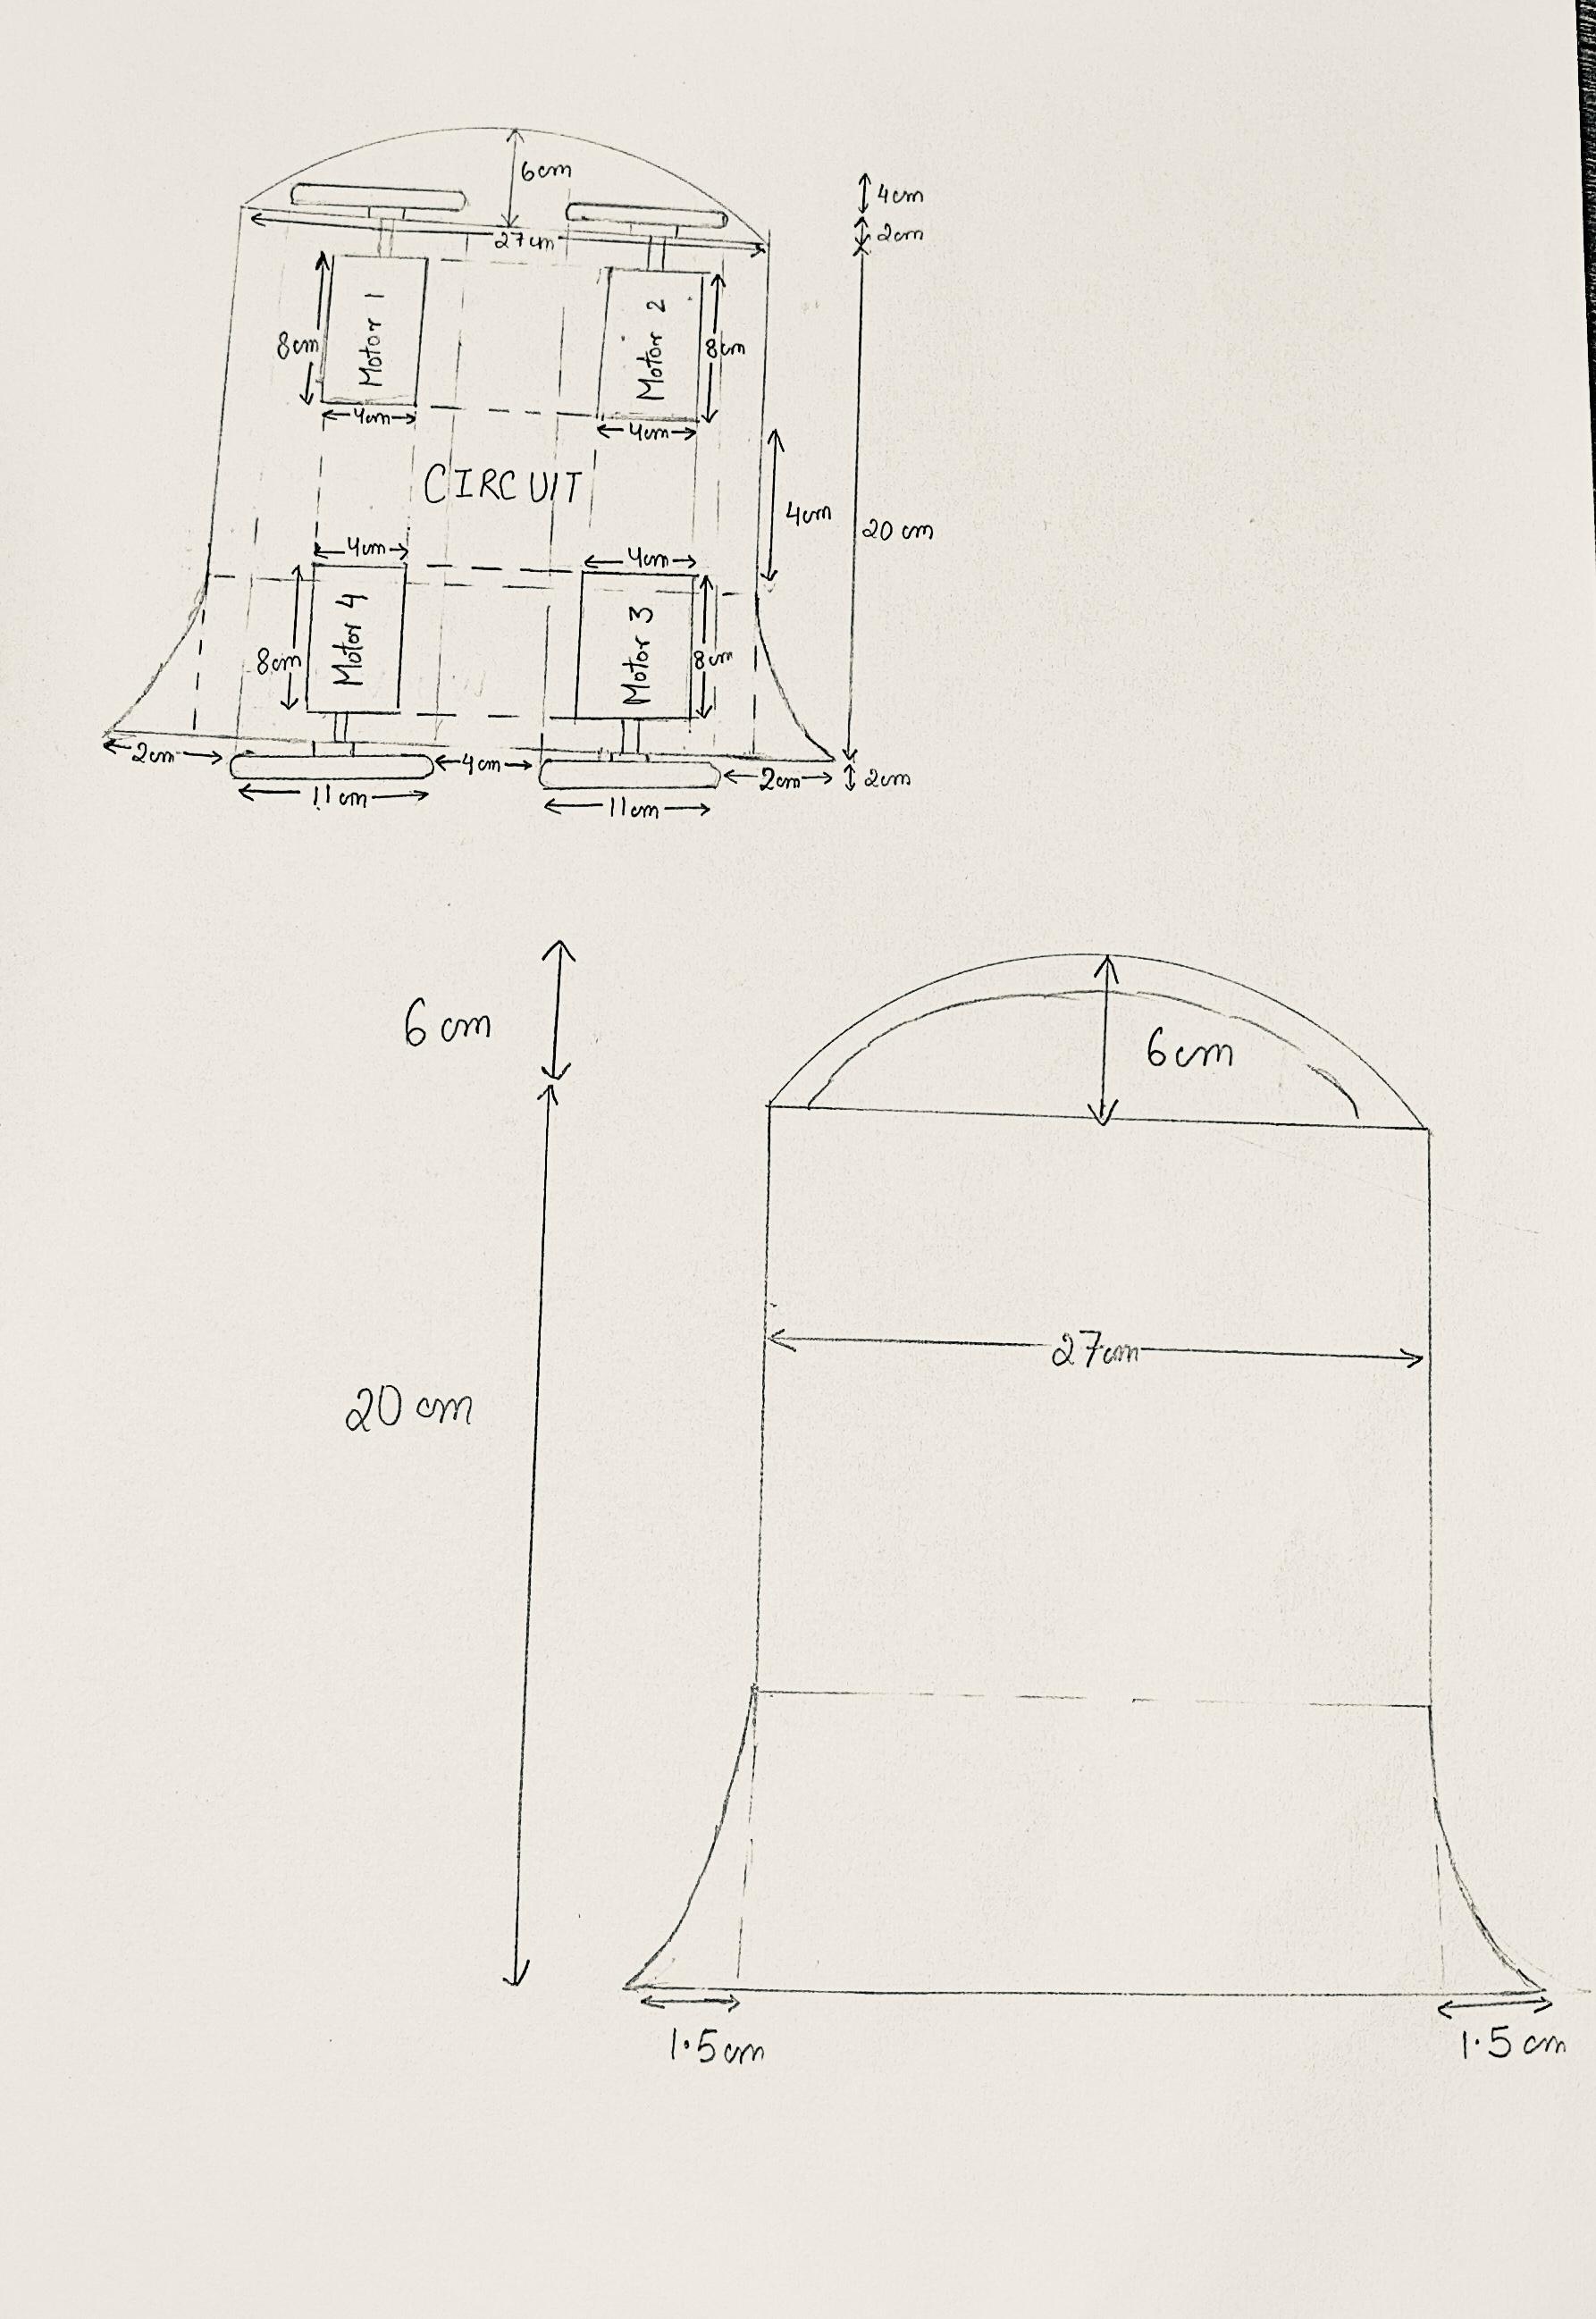 6cm
4cm
2cm
27cm
Motor 1
Motor 2
8cm
8cm
4cm
4cm
CIRCUIT
4cm
20 cm
4cm
4cm
Motor 4
Motor 3
8cm
8cm
2cm
4cm
2cm
2cm
11cm
11cm
6 cm
6cm
27cm
20 cm
1.5cm
1.5cm